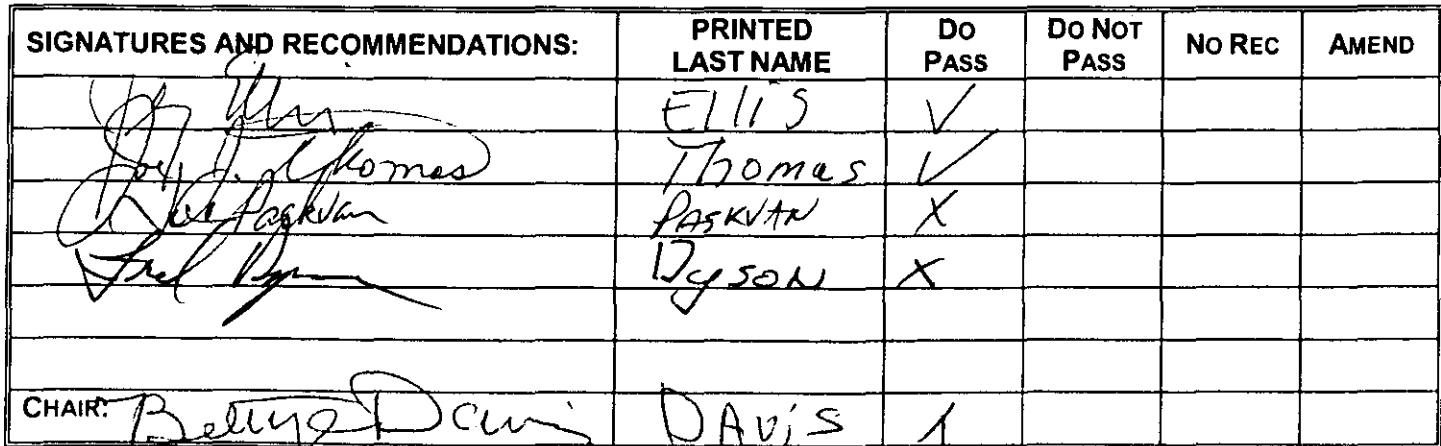 SIGNATURES AND RECOMMENDATIONS: PRINTED LAST NAME DO PASS DO NOT PASS NO REC AMEND
Ellis ✓
Thomas Thomas ✓
Joe Paskvan PASKVAN X
Fred Dyson Dyson X
CHAIR: Bettye Davis DAVIS